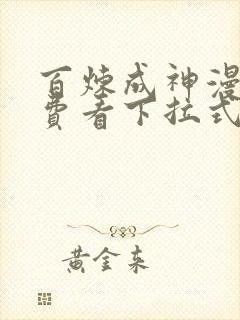 百炼成神漫
费看下拉式
黄金来